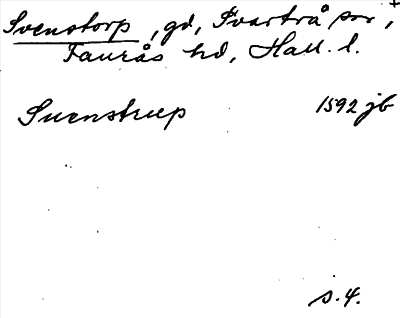 Svenstorp, gd, Svartrå sn,+
Faurås hd, Hall. l.
Suenstrup 1592 jb
s. 4.